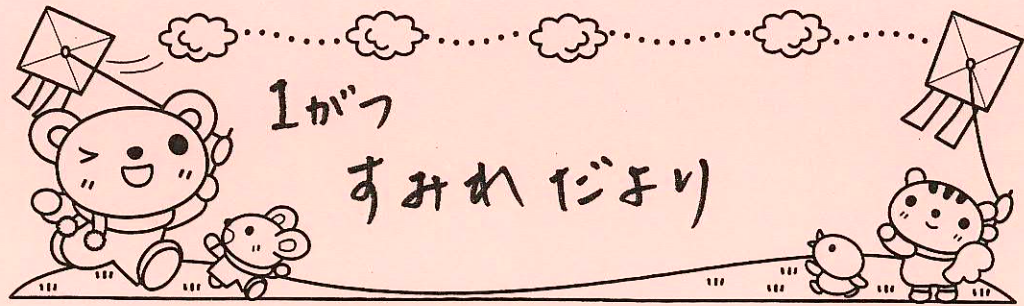 1がつ
すみれだより